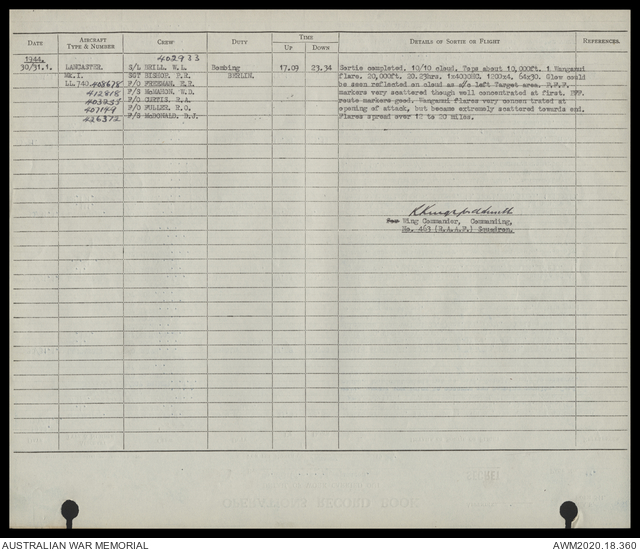 DATE
AIRCRAFT TYPE & NUMBER
CREW
DUTY
TIME
UP
DOWN
DETAILS OF SORTIE OR FLIGHT
REFERENCES.
402933
1944.
30/31.1. LANCASTER. S/L BRILL, W.L. Bombing 17.09 23.34 Sortie completed. 10/10 cloud. Tops about 10,000ft. 1 Wanganui
MK.I. SGT BISHOP, P.R. BERLIN. flare. 20,000ft. 20.23hrs. 1x4000HC, 1200x4, 64x30. Glow could
LL.740 408678 F/O FREEMAN, E.R. be seen reflected on cloud as a/c left Target area. P.F.F.
412818 F/S McMAHON, W.D. markers very scattered though well concentrated at first. PFF
403235 F/O CURTIS, R.A. route markers good. Wanganui flares very concentrated at
407149 F/O FULLER, R.G. opening of attack, but became extremely scattered towards end.
426372 F/S McDONALD, D.J. Flares spread over 12 to 20 miles.
for Wing Commander, Commanding,
No. 463 (R.A.A.F.) Squadron.
OPERATIONS RECORD BOOK
AUSTRALIAN WAR MEMORIAL
AWM2020.18.360